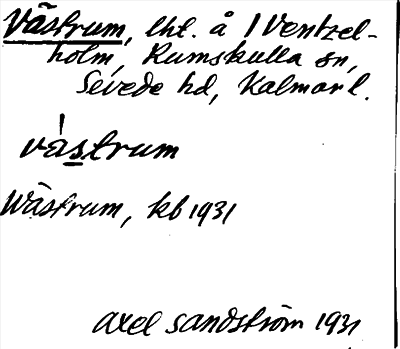 Västrum, lht. å 1 Ventzel-
holm, Rumskulla sn,
Sevede hd, Kalmar l.
västrum
Wästrum, kb 1931
Axel Sandström 1931